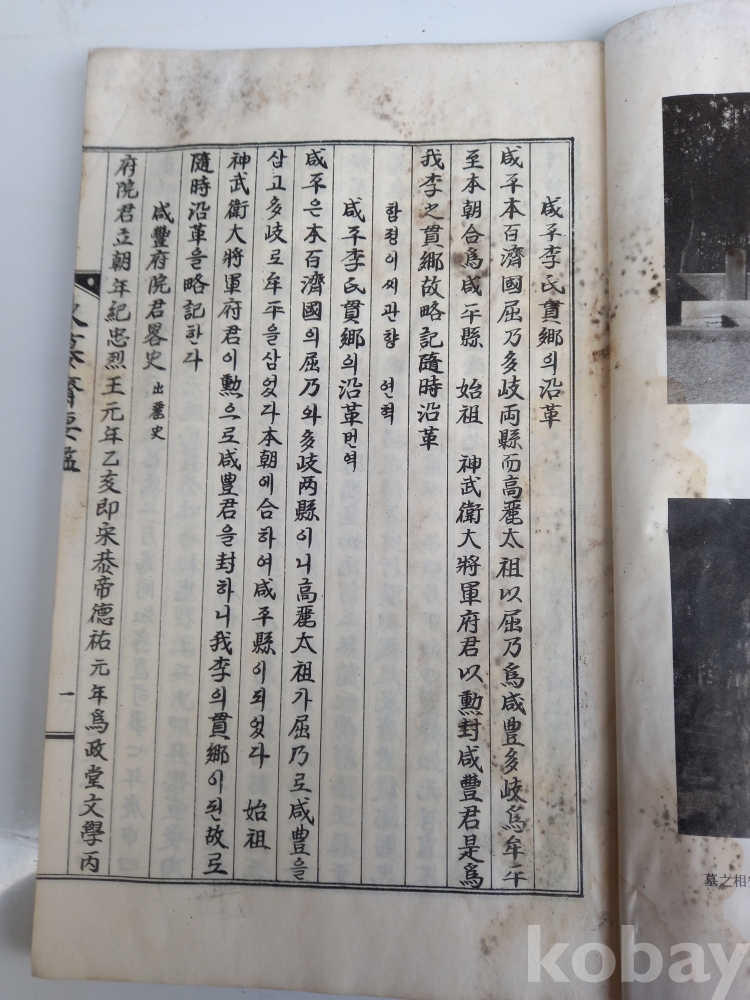 咸平李氏貫鄉의沿革
咸平本百濟國屈乃多岐両縣而高麗太祖以屈乃爲咸豊多岐爲牟平
至本朝合爲咸平縣 始祖 神武衛大將軍府君以勲封咸豊君是爲
我李之貫鄉故略記隨時沿革
함평이씨관향 연혁
咸平李氏貫鄉의沿革번역
咸平은本百濟國의屈乃와多岐両縣이니高麗太祖가屈乃로咸豊을
삼고多岐로牟平을삼었다本朝에合하여咸平縣이되었다 始祖
神武衛大將軍府君이勲으로咸豊君을封하니我李의貫鄉이된故로
隨時沿革을略記한다
咸豊府院君畧史 出麗史
府院君立朝年紀忠烈王元年乙亥即宋恭帝德祐元年爲政堂文學丙
一
墓之相
kobay